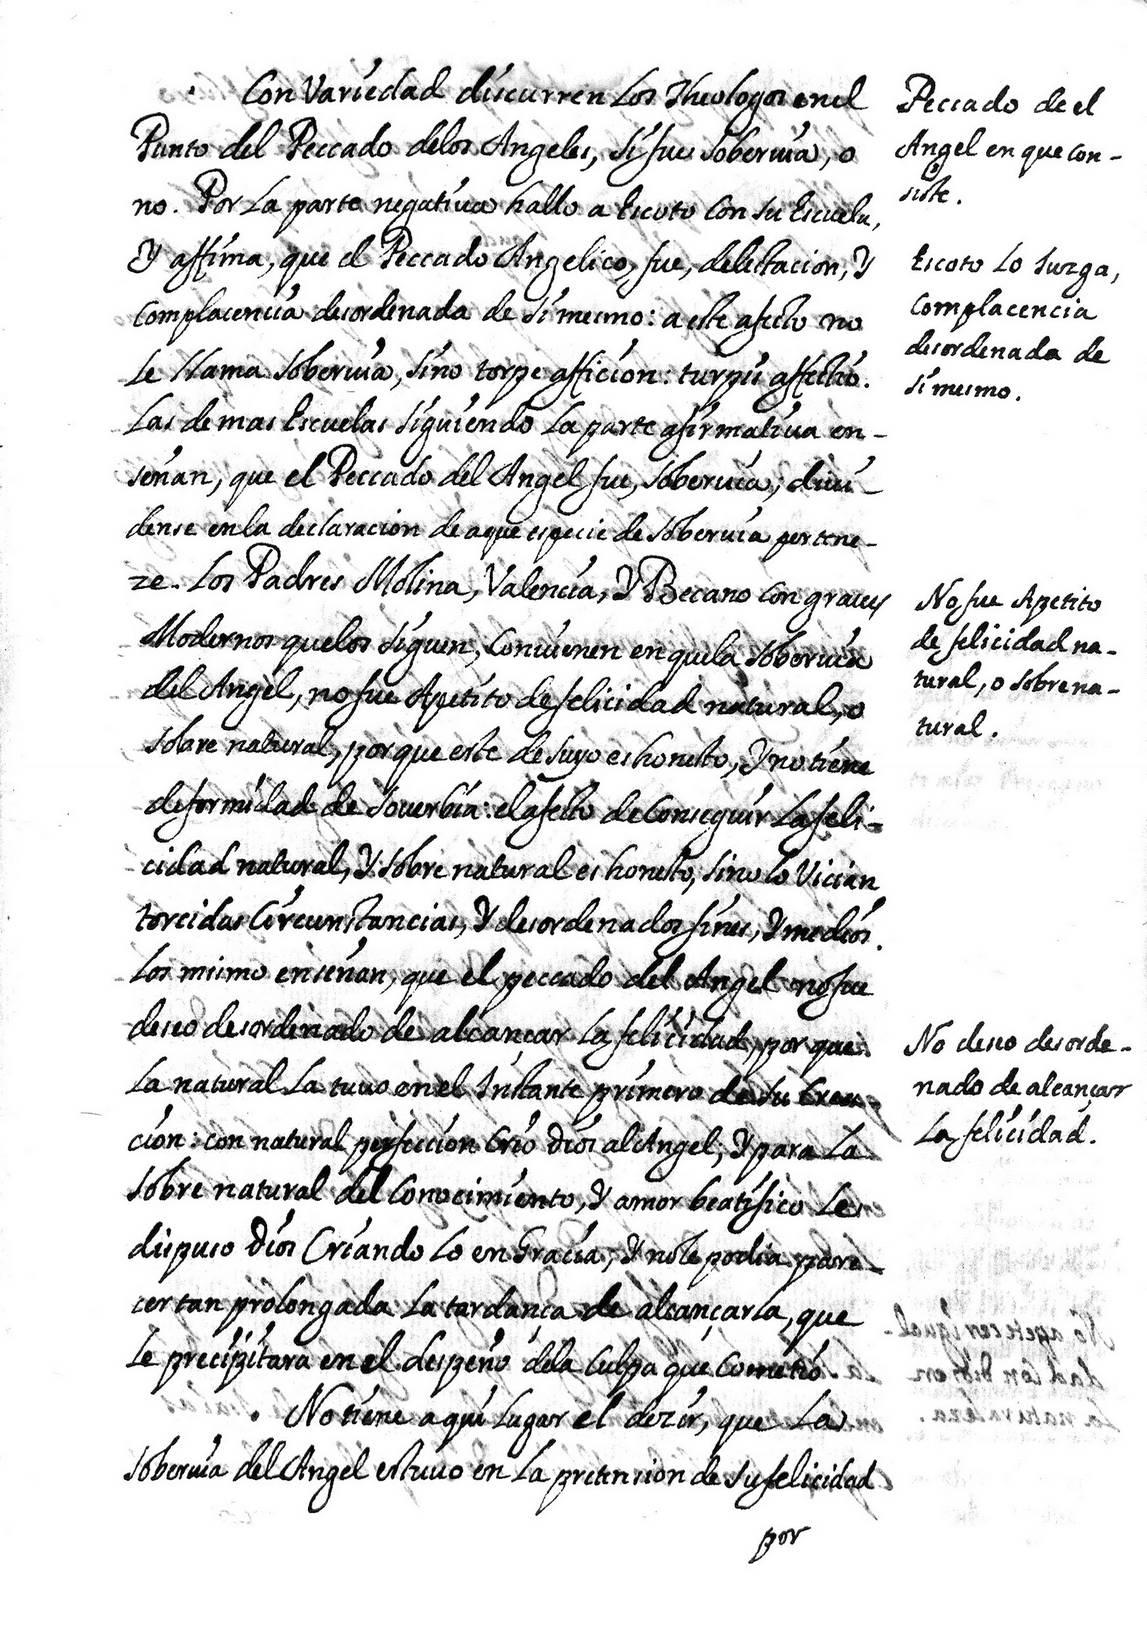 Con Variedad discurren Los Theologos en el
Punto del Peccado delos Angeles, si fue soberuia, o
no. Por La parte negatiua hallo a Escoto Con su Escuela,
Y affima, que el Peccado Angelico, fue, delectacion, Y
Complacencia desordenada de si mesmo: a este afecto no
Le llama soberuia, sino torpe afficion: turpis affectio.
Las demas Escuelas siguiendo La parte afirmatiua en-
señan, que el Peccado del Angel fue, soberuia; diui-
dense en la declaracion de a que especie de soberuia pertene-
ze. Los Padres Molina, Valencia, Y Becano con graues
Modernos que los siguen, Conuienen en que la soberuia
del Angel, no fue Apetito de felicidad natural, o
sobre natural, por que este de suyo es honesto, Y no tiene
deformidad de souerbia: el afecto de Conseguir La feli-
cidad natural, Y sobre natural es honesto, sino lo Vician
torcidas Circunstancias, Y desordenados fines, Y medios.
Los mismo enseñan, que el peccado del Angel no fue
deseo desordenado de alcançar La felicidad, por que
La natural La tuuo en el Instante primero de su Crea-
cion: con natural perfeccion Crio Dios al Angel, Y para La
sobre natural del Conocimiento, Y amor beatifico Le
dispuso Dios Criando Lo en Gracia, Y no le podia pare-
cer tan prolongada La tardança de alcançarla, que
Le precipitara en el despeño de la Culpa que Cometio
No tiene aqui Lugar el dezir, que La
soberuia del Angel estuuo en La pretension de su felicidad
por
Peccado de el
Angel en que con-
siste.
Escoto Lo Juzga,
Complacencia
desordenada de
si mesmo.
No fue Apetito
de felicidad na-
tural, o sobrena-
tural.
No deseo desorde-
nado de alcançar
La felicidad.